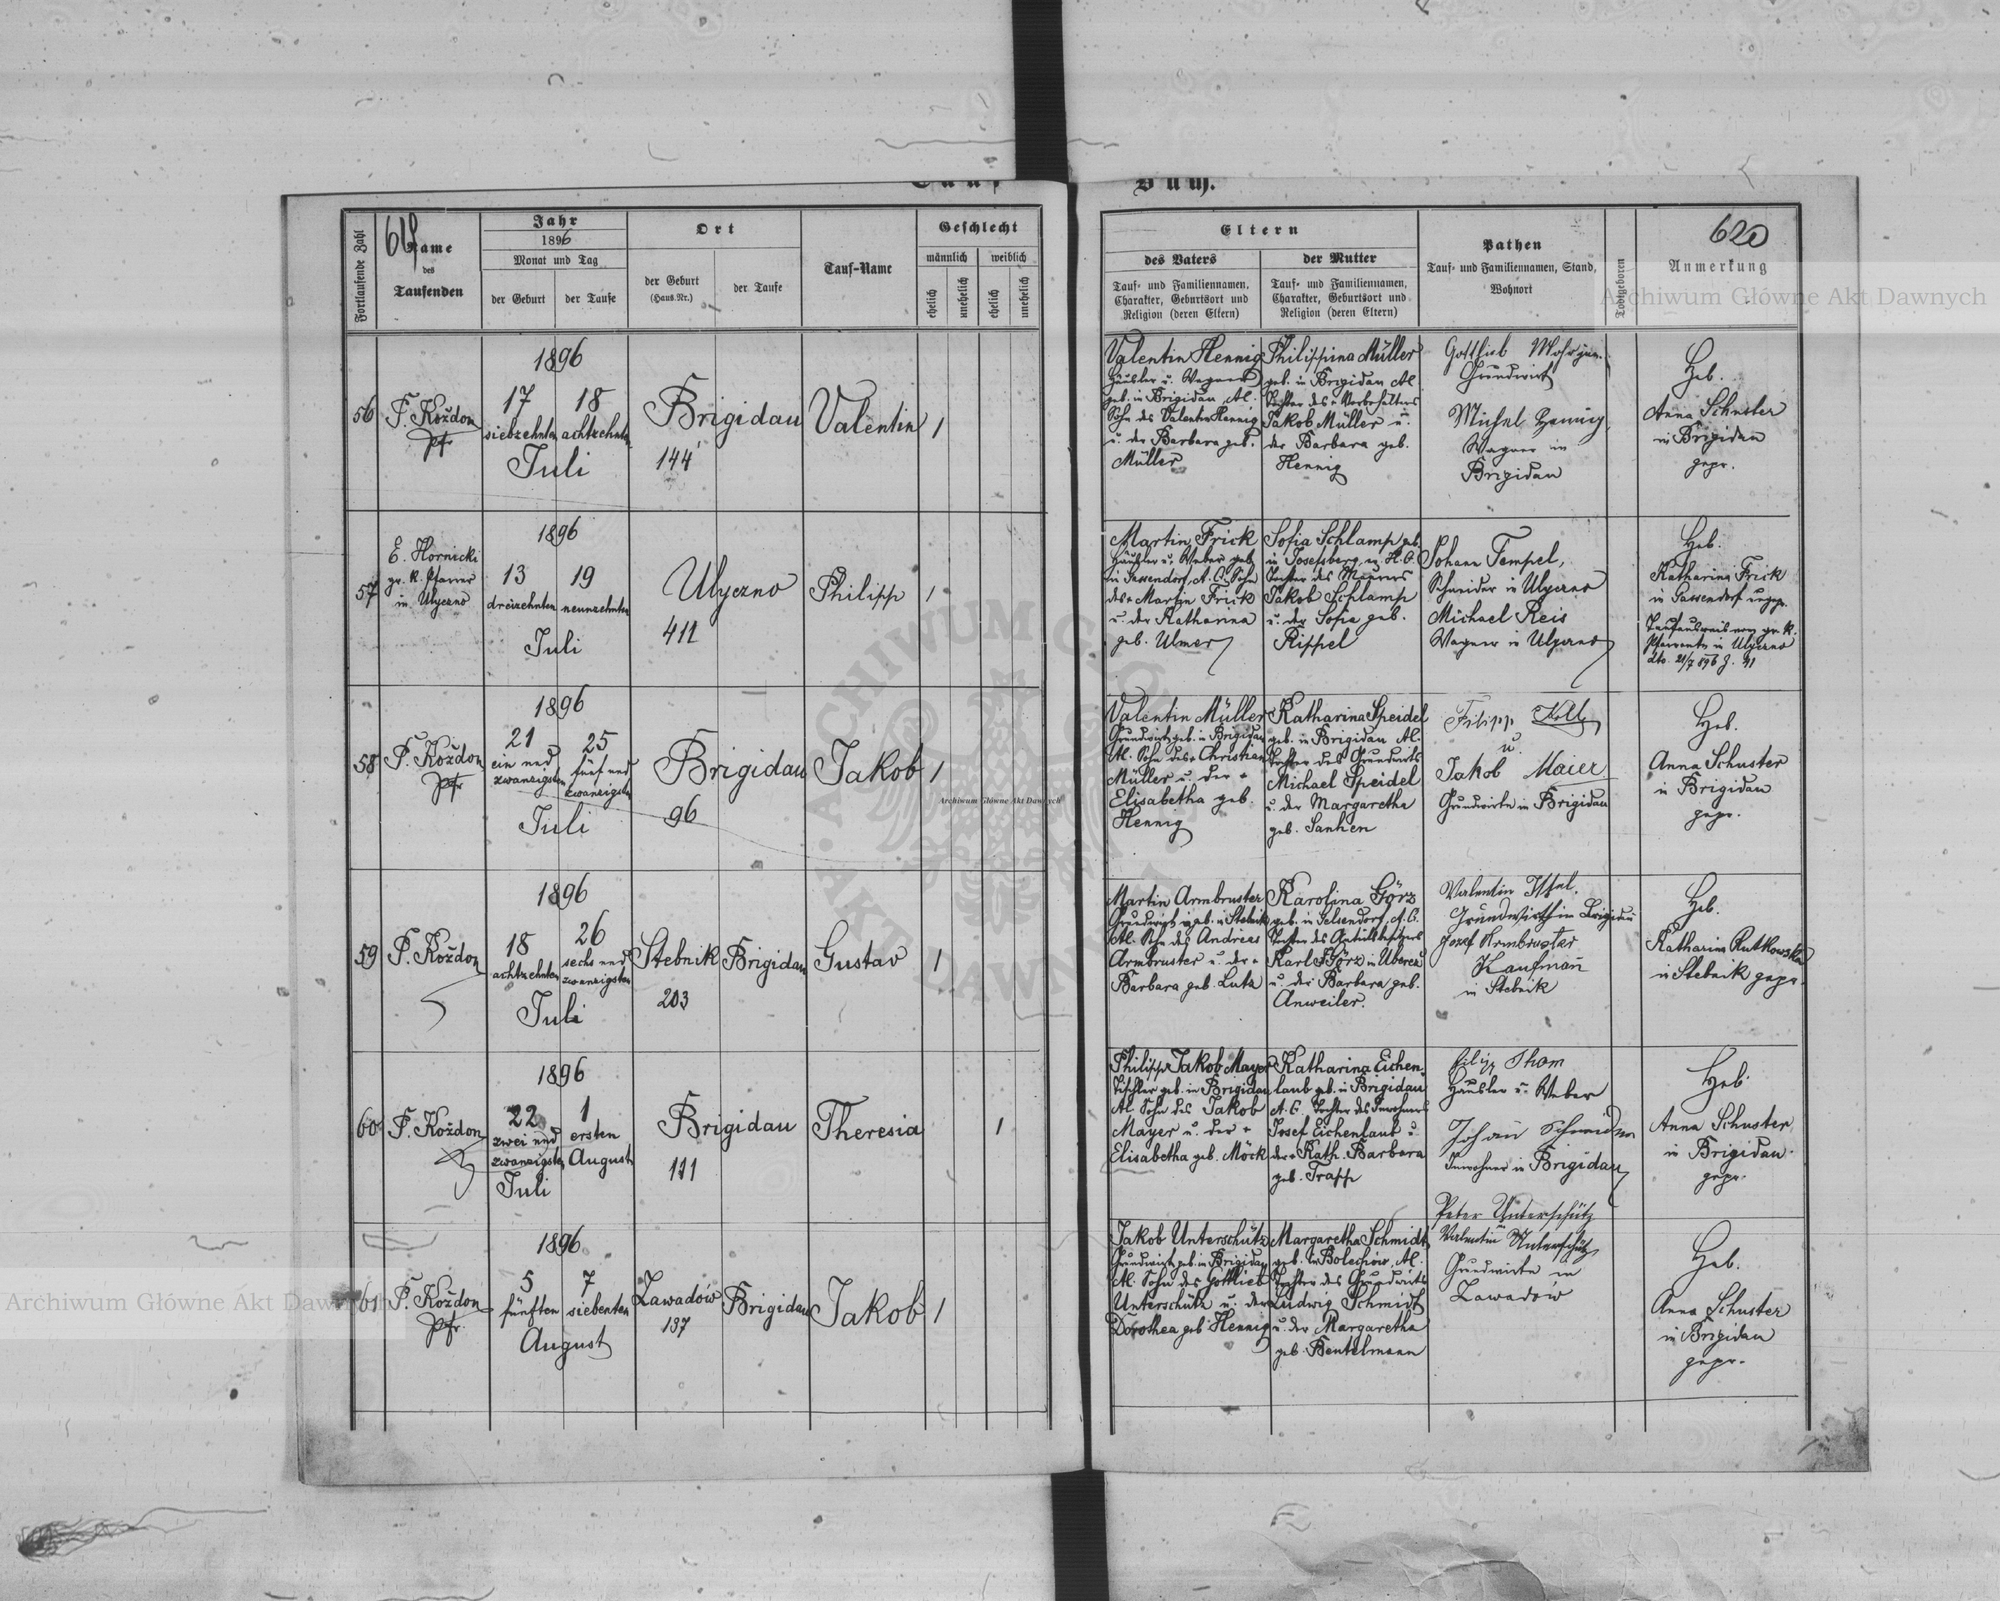 Tauf
Buch.
619
620
Fortlaufende Zahl
Name
des
Taufenden
Jahr
1896
Monat und Tag
der Geburt
der Taufe
Ort
der Geburt
(Haus-Nr.)
der Taufe
Tauf-Name
Geschlecht
männlich
weiblich
ehelich
unehelich
ehelich
unehelich
Eltern
des Vaters
Tauf- und Familiennamen,
Charakter, Geburtsort und
Religion (deren Eltern)
der Mutter
Tauf- und Familiennamen,
Charakter, Geburtsort und
Religion (deren Eltern)
Pathen
Tauf- und Familiennamen, Stand,
Wohnort
Todtgeboren
Anmerkung
56
F. Koždon
Pfr
1896
17
siebzehnten
18
achtzehnten
Juli
Brigidau
144
Valentin
1
Valentin Hennig
Häusler u. Wagner
geb. in Brigidau, Al.
Sohn des Valentin Hennig
u. der Barbara geb.
Müller
Philippina Müller
geb. in Brigidau Al
Tochter des + Vorbehälters
Jakob Müller u.
der Barbara geb.
Hennig
Gottlieb Mohr jun.
Grundwirt
Michel Hennig
Wagner in
Brigidau
Heb.
Anna Schuster
in Brigidau
gepr.
57
E. Hornicki
gr. k. Pfarrer
in Ulyczno
1896
13
dreizehnten
19
neunzehnten
Juli
Ulyczno
411
Philipp
1
Martin Frick
Häusler u. Weber geb.
in Gassendorf, A. C. Sohn
des + Martin Frick
u. der Katharina
geb. Ulmer
Sofia Schlamp geb.
in Josefsberg, ev. H. C.
Tochter des Maurers
Jakob Schlamp
u. der Sofia geb.
Rippel
Johann Tempel,
Schneider in Ulyczno
Michael Reis
Wagner in Ulyczno
Heb.
Katharina Frick
in Gassendorf ungepr.
Taufausweis vom gr. k.
Pfarramte in Ulyczno
dto. 21/7 896 Z. 41
58
F. Koždon
Pfr
1896
21
ein und
zwanzigsten
25
fünf und
zwanzigsten
Juli
Brigidau
96
Jakob
1
Valentin Müller
Grundwirt geb. in Brigidau
Al. Sohn des + Christian
Müller u. der +
Elisabetha geb.
Hennig
Katharina Speidel
geb. in Brigidau Al.
Tochter des Grundwirts
Michael Speidel
u. der Margaretha
geb. Sanken
Filipp Kolb
u.
Jakob Maier
Grundwirte in Brigidau
Heb.
Anna Schuster
in Brigidau
gepr.
59
F. Koždon
1896
18
achtzehnten
26
sechs und
zwanzigsten
Juli
Stebnik
203
Brigidau
Gustav
1
Martin Armbruster
Grundwirt geb. in Stebnik
Al. Sohn des Andreas
Armbruster u. der +
Barbara geb. Lutz
Karolina Görz
geb. in Gelsendorf, A. C.
Tochter des Antheilsbesitzers
Karl Görz in Uberec
u. der Barbara geb.
Anweiler.
Valentin Issel.
Grundwirth in Brigidau
Josef Armbruster
Kaufmann
in Stebnik
Heb.
Katharina Rutkowska
in Stebnik gepr.
60
F. Koždon
1896
22
zwei und
zwanzigsten
Juli
1
ersten
August
Brigidau
111
Theresia
1
Philipp Jakob Mayer
Tischler geb. in Brigidau
Al Sohn des Jakob
Mayer u. der +
Elisabetha geb. Möck
Katharina Eichen-
laub geb. in Brigidau
A. C. Tochter des Inwohners
Josef Eichenlaub u
der + Kath. Barbara
geb. Trapp
Filipp Thom
Häusler u. Weber
Johann Schneider
Inwohner in Brigidau
Heb.
Anna Schuster
in Brigidau.
gepr.
61
F. Koždon
Pfr.
1896
5
fünften
7
siebenten
August
Zawadów
137
Brigidau
Jakob
1
Jakob Unterschütz
Grundwirt geb. in Brigidau
Al. Sohn des Gottlieb
Unterschütz u. der
Dorothea geb Hennig
Margaretha Schmidt
geb. in Bolechów, Al.
Tochter des Grundwirts
Ludwig Schmidt
u. der Margaretha
geb. Bentelmann
Peter Unterschütz
Valentin Unterschütz
Grundwirte in
Zawadów
Heb.
Anna Schuster
in Brigidau
gepr.
Archiwum Główne Akt Dawnych
Archiwum Główne Akt Dawnych
Archiwum Główne Akt Dawnych